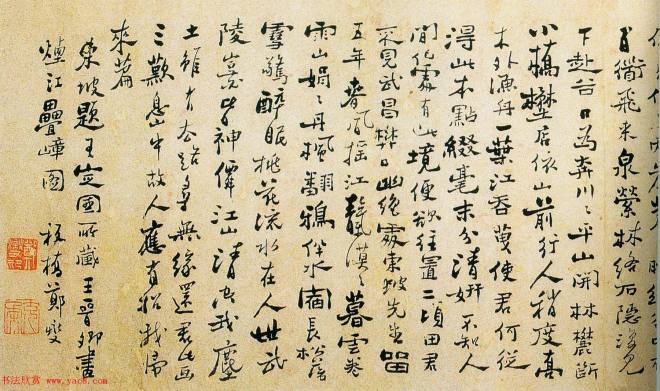 百衜飛來泉縈林絡石隱復見
下赴谷口為奔川〻平山開林麓斷
小橋壄店依山前行人稍度喬
木外漁舟一葉江吞天使君何從
得此本點綴毫末分清妍不知人
間何處有此境便欲往置二頃田君
不見武昌樊口幽絕處東坡先生留
五年春風搖江天漠〻暮雲卷
雨山娟〻丹楓翻鴉伴水宿長松落
雪驚醉眠桃花流水在人世武
陵豈必皆神僊江山清空我塵
土雖有去路尋無緣還君此畫
三歎息山中故人應有招我歸
來篇
東坡題王定國所藏王晉卿畫
煙江疊嶂圖 板橋鄭燮
书法欣赏 www.yac8.com